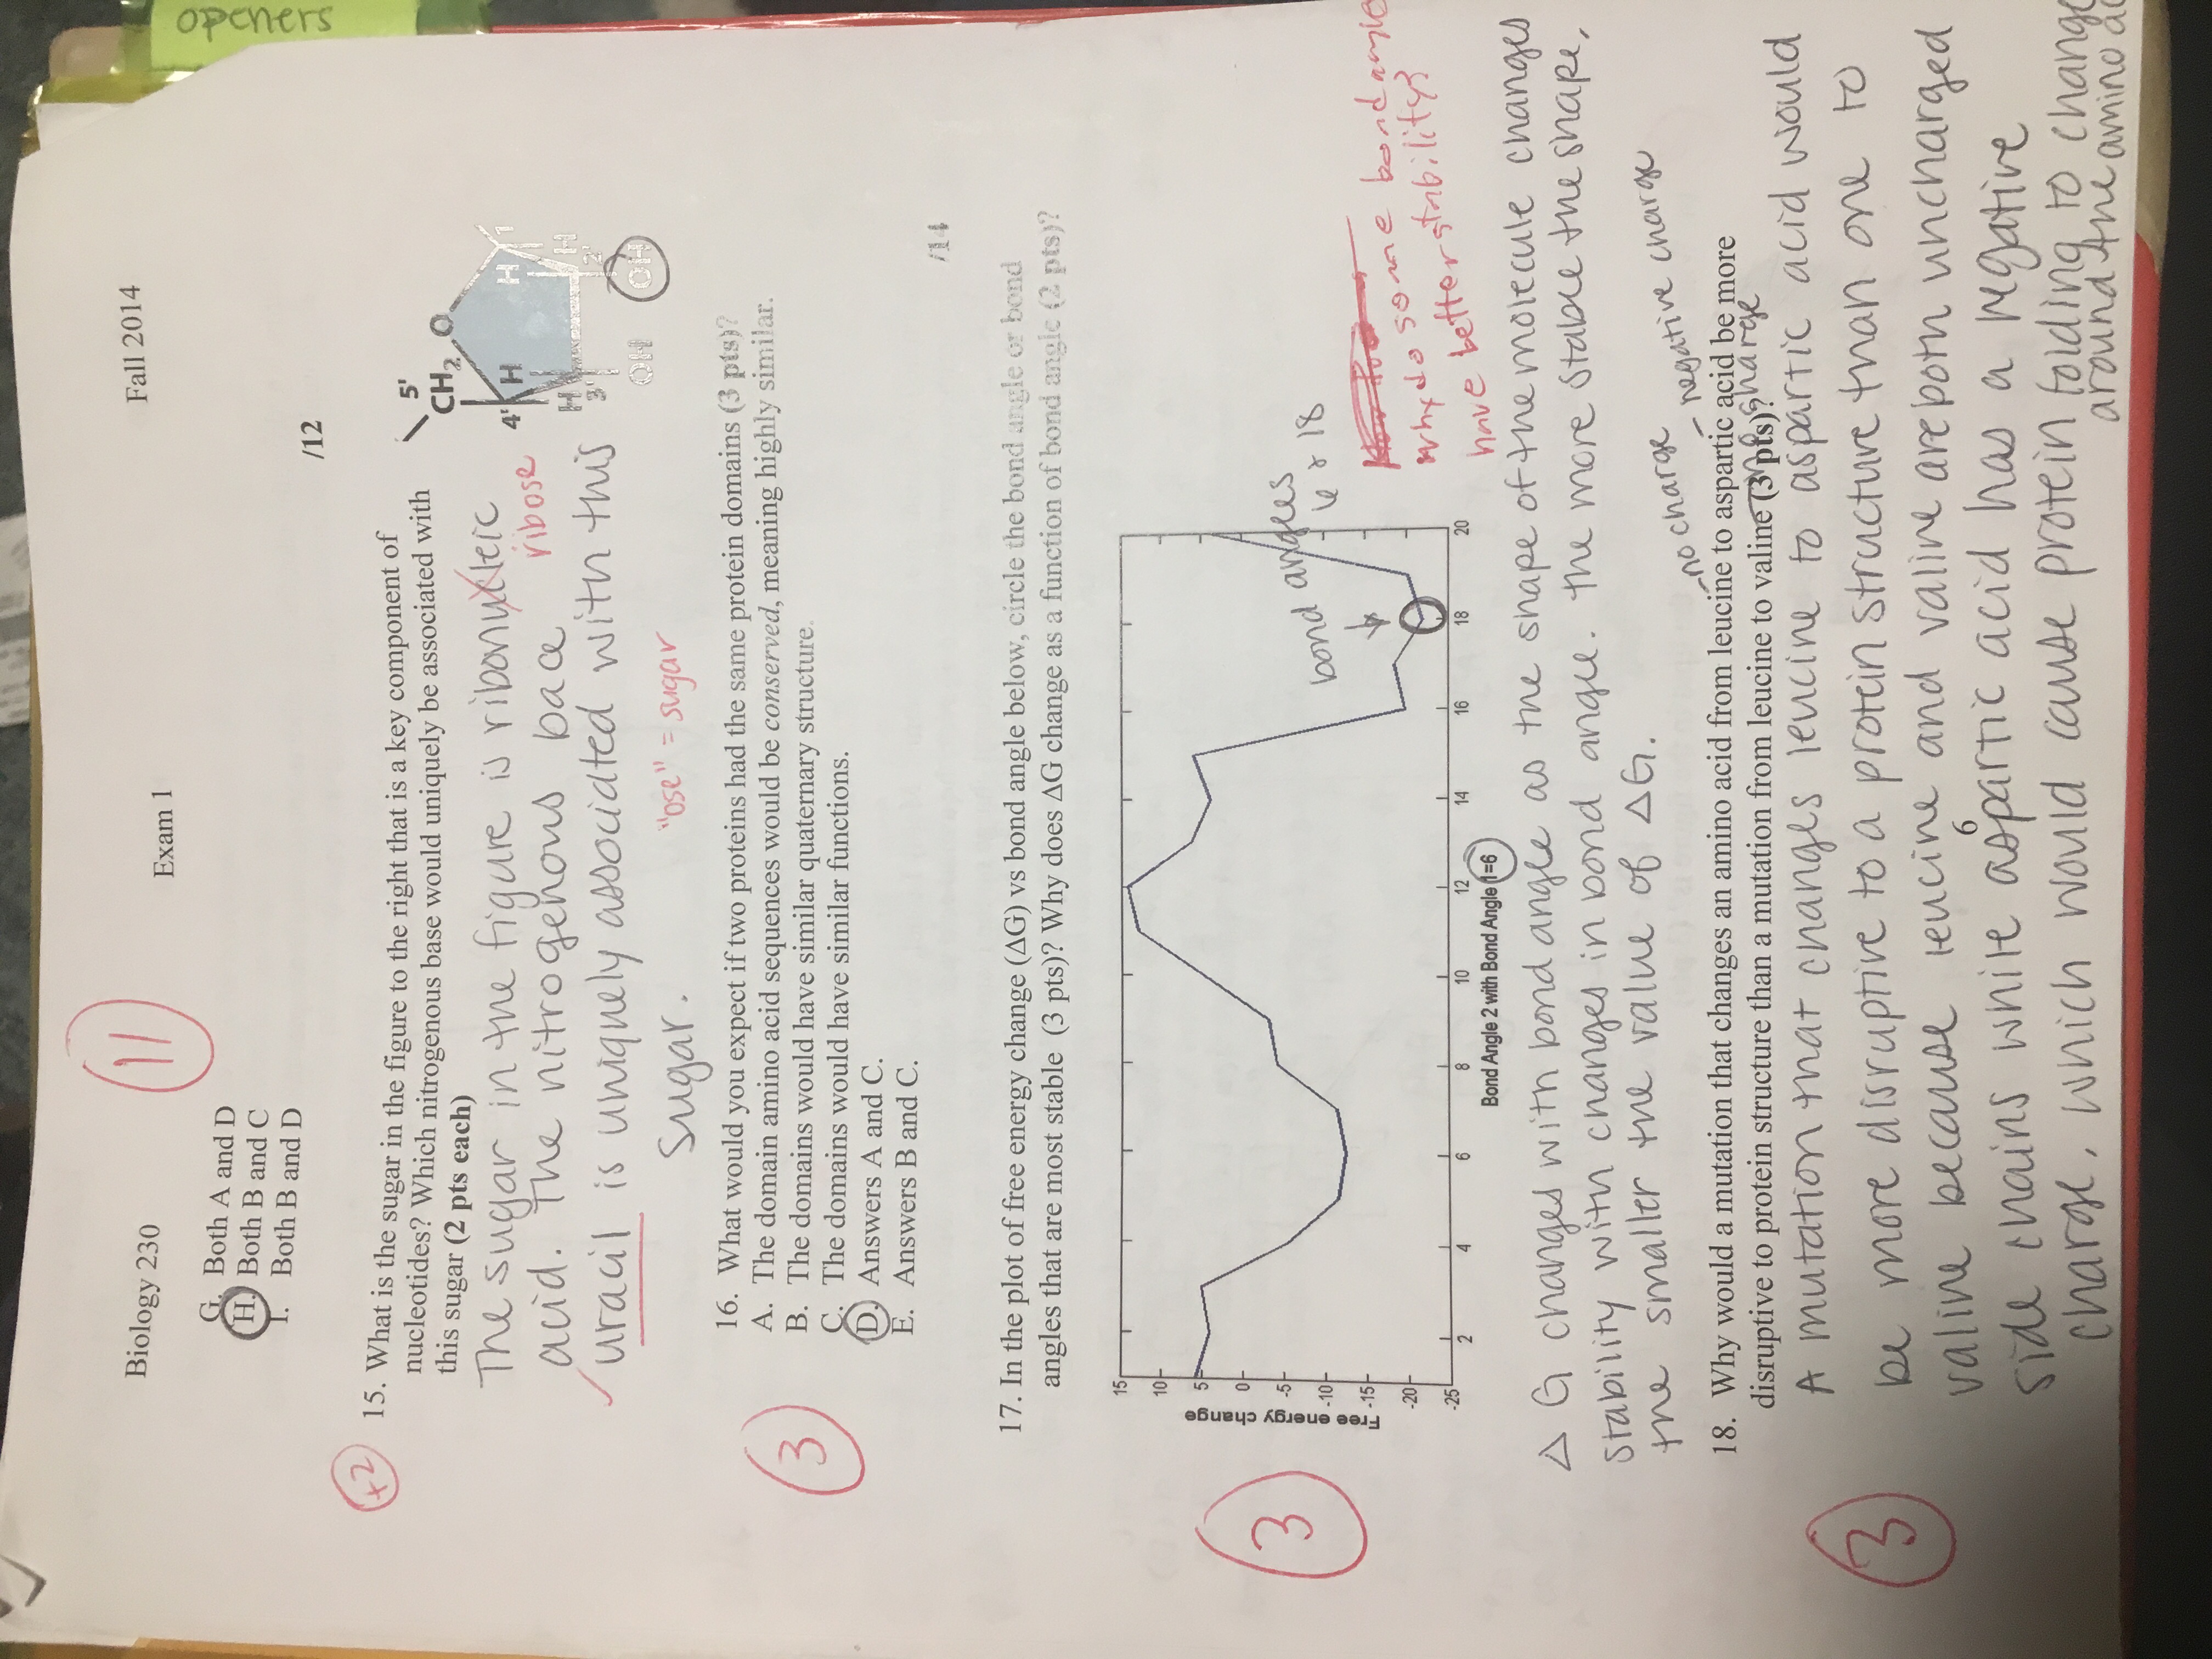 openers
11
Biology 230
Exam 1
Fall 2014
G. Both A and D
H. Both B and C
I. Both B and D
/12
+2
15. What is the sugar in the figure to the right that is a key component of
nucleotides? Which nitrogenous base would uniquely be associated with
this sugar (2 pts each)
The sugar in the figure is ribonucleic
acid. The nitrogenous bace
ribose
uracil is uniquely associated with this
sugar.
"ose" = sugar
5'
CH2 O
4' H H 1
H H
3' 2'
OH OH
3
16. What would you expect if two proteins had the same protein domains (3 pts)?
A. The domain amino acid sequences would be conserved, meaning highly similar.
B. The domains would have similar quaternary structure.
C. The domains would have similar functions.
D. Answers A and C.
E. Answers B and C.
/14
17. In the plot of free energy change (ΔG) vs bond angle below, circle the bond angle or bond
angles that are most stable (3 pts)? Why does ΔG change as a function of bond angle (2 pts)?
3
Free energy change
15
10
5
0
-5
-10
-15
-20
-25
2 4 6 8 10 12 14 16 18 20
Bond Angle 2 with Bond Angle 1=6
bond angles
6 & 18
Why do some bond angle
have better stability?
Δ G changes with bond angle as the shape of the molecule changes
stability with changes in bond angle. The more stable the shape,
the smaller the value of ΔG.
-no charge
- negative charge
18. Why would a mutation that changes an amino acid from leucine to aspartic acid be more
disruptive to protein structure than a mutation from leucine to valine (3 pts)?
no charge
3
A mutation that changes leucine to aspartic acid would
be more disruptive to a protein structure than one to
valine because leucine and valine are both uncharged
6
side chains while aspartic acid has a negative
charge, which would cause protein folding to change
around the amino ac